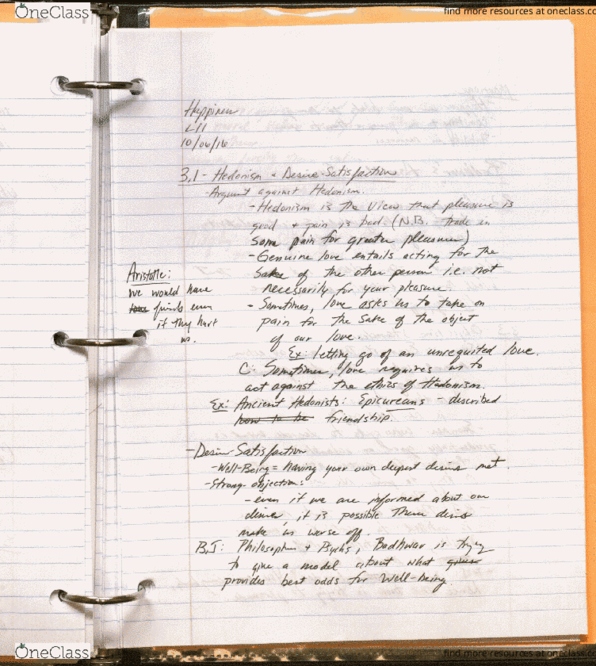 OneClass
find more resources at oneclass.com
Happiness
L11
10/06/16
3.1 - Hedonism + Desire Satisfaction
- Argument against Hedonism.
- Hedonism is the view that pleasure is
good + pain is bad. (N.B. trade in
some pain for greater pleasure)
- Genuine love entails acting for the
sake of the other person i.e. not
necessarily for your pleasure.
- Sometimes, love asks us to take on
pain for the sake of the object
of our love.
Ex: letting go of an unrequited love.
C: Sometimes, love requires us to
act against the ethics of Hedonism.
Aristotle:
we would have
friends even
if they hurt
us.
Ex: Ancient Hedonists: Epicureans - described
how to be friendship.
- Desire Satisfaction
- Well-Being = having your own deepest desires met.
- Strong objection:
- even if we are informed about our
desire, it is possible these desires
make us worse off.
B.I: Philosophy + Psychs, Badhwar is trying
to give a model about what
provides best odds for Well-being
OneClass
find more resources at oneclass.com